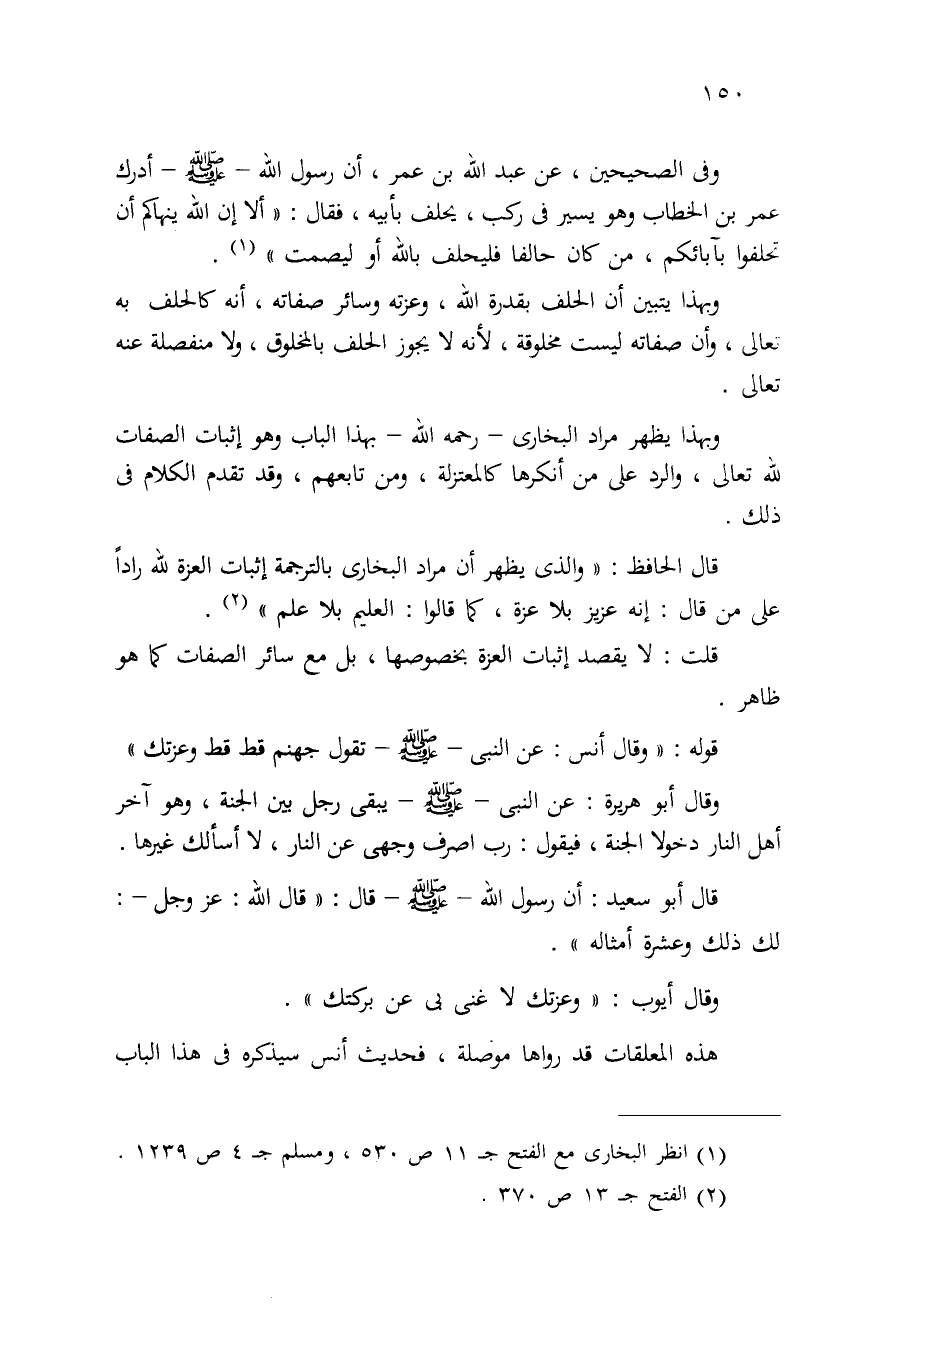 ١٥٠
وفى الصحيحين ، عن عبد الله بن عمر ، أن رسول الله – ﷺ – أدرك
عمر بن الخطاب وهو يسير فى ركب ، يحلف بأبيه ، فقال : « ألا إن الله ينهاكم أن
تحلفوا بآبائكم ، من كان حالفا فليحلف بالله أو ليصمت » (١) .
وبهذا يتبين أن الحلف بقدرة الله ، وعزته وسائر صفاته ، أنه كالحلف به
تعالى ، وأن صفاته ليست مخلوقة ، لأنه لا يجوز الحلف بالمخلوق ، ولا منفصلة عنه
تعالى .
وبهذا يظهر مراد البخارى – رحمه الله – بهذا الباب وهو إثبات الصفات
لله تعالى ، والرد على من أنكرها كالمعتزلة ، ومن تابعهم ، وقد تقدم الكلام فى
ذلك .
قال الحافظ : « والذى يظهر أن مراد البخارى بالترجمة إثبات العزة لله راداً
على من قال : إنه عزيز بلا عزة ، كما قالوا : العليم بلا علم » (٢) .
قلت : لا يقصد إثبات العزة بخصوصها ، بل مع سائر الصفات كما هو
ظاهر .
قوله : « وقال أنس : عن النبى – ﷺ – تقول جهنم قط قط وعزتك »
وقال أبو هريرة : عن النبى – ﷺ – يبقى رجل بين الجنة ، وهو آخر
أهل النار دخولا الجنة ، فيقول : رب اصرف وجهى عن النار ، لا أسألك غيرها .
قال أبو سعيد : أن رسول الله – ﷺ – قال : « قال الله : عز وجل – :
لك ذلك وعشرة أمثاله » .
وقال أيوب : « وعزتك لا غنى بى عن بركتك » .
هذه المعلقات قد رواها موصلة ، فحديث أنس سيذكره فى هذا الباب
(١) انظر البخارى مع الفتح جـ ١١ ص ٥٣٠ ، ومسلم جـ ٤ ص ١٢٣٩ .
(٢) الفتح جـ ١٣ ص ٣٧٠ .